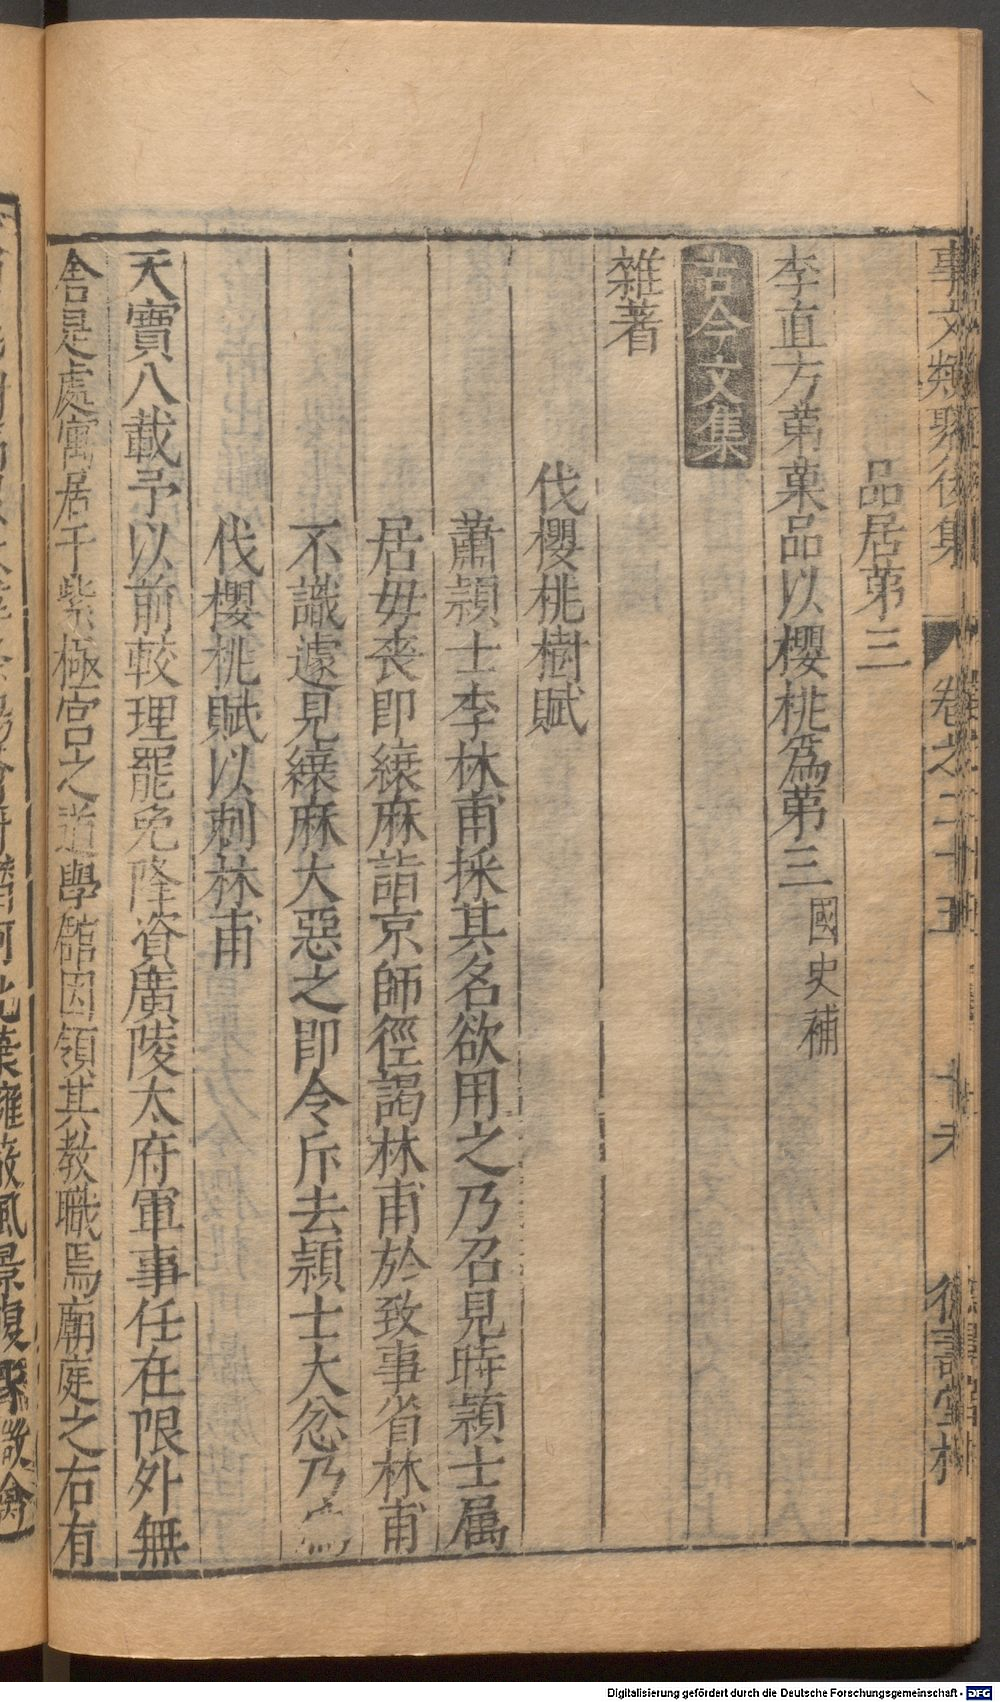 事文類聚後集 卷之二十五
品居苐三
李直方苐菓品以櫻桃爲苐三國史補
古今文集
雜著
伐櫻桃樹賦
蕭頴士李林甫採其名欲用之乃召見時頴士属
居毋丧即縗麻詣京師徑謁林甫於致事省林甫
不識遽見縗麻大惡之即令斥去頴士大忿乃爲
伐櫻桃賦以刺林甫
天寶八載予以前較理罷免降資廣陵太府軍事任在限外無
舎是處寓居于紫極宮之道學舘因領其教職焉廟庭之右有
Digitalisierung gefördert durch die Deutsche Forschungsgemeinschaft - DFG